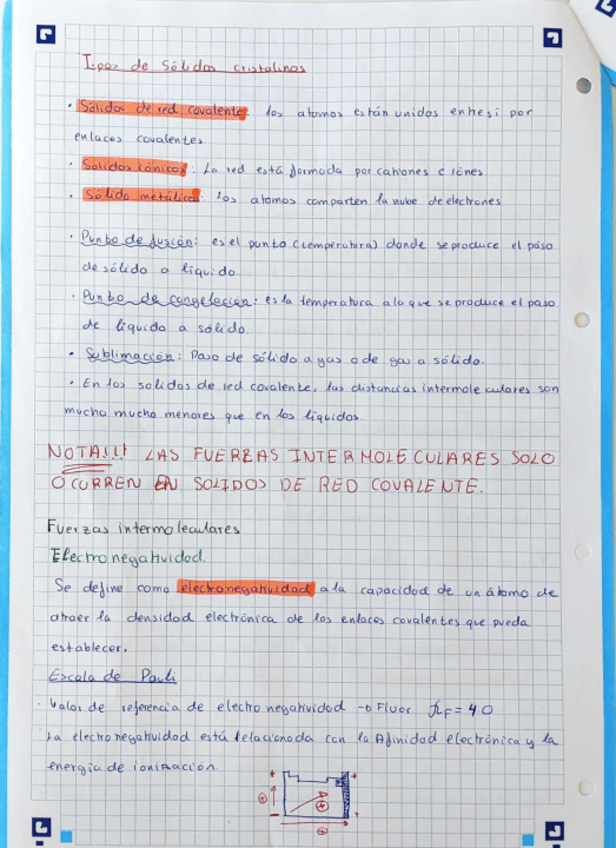 Tipos de Sólidos cristalinos
· Sólidos de red covalente: los atomos están unidos entresi por
enlaces covalentes.
· Solidos iónicos: La red está formada por cationes e iónes
· Sólido metálicos: los atomos comparten la nube de electrones
· Punto de fusión: es el punto (temperatura) donde se produce el paso
de sólido a líquido.
· Punto de congelación: es la temperatura a la que se produce el paso
de líquido a sólido.
· Sublimación: Paso de sólido a gas o de gas a sólido.
· En los solidos de red covalente, las distancias intermoleculares son
mucho mucho menores que en los líquidos.
NOTA!!! LAS FUERZAS INTERMOLECULARES SOLO
OCURREN EN SOLIDOS DE RED COVALENTE.
Fuerzas intermoleculares
Electronegatividad.
Se define como electronegatividad a la capacidad de un átomo de
atraer la densidad electrónica de los enlaces covalentes que pueda
establecer.
Escala de Pauli
· Valor de referencia de electronegatividad → Fluor F = 4.0
La electronegatividad está relacionada con la Afinidad electrónica y la
energía de ionización.
+ +
⊕ ⊕
- -
⊕